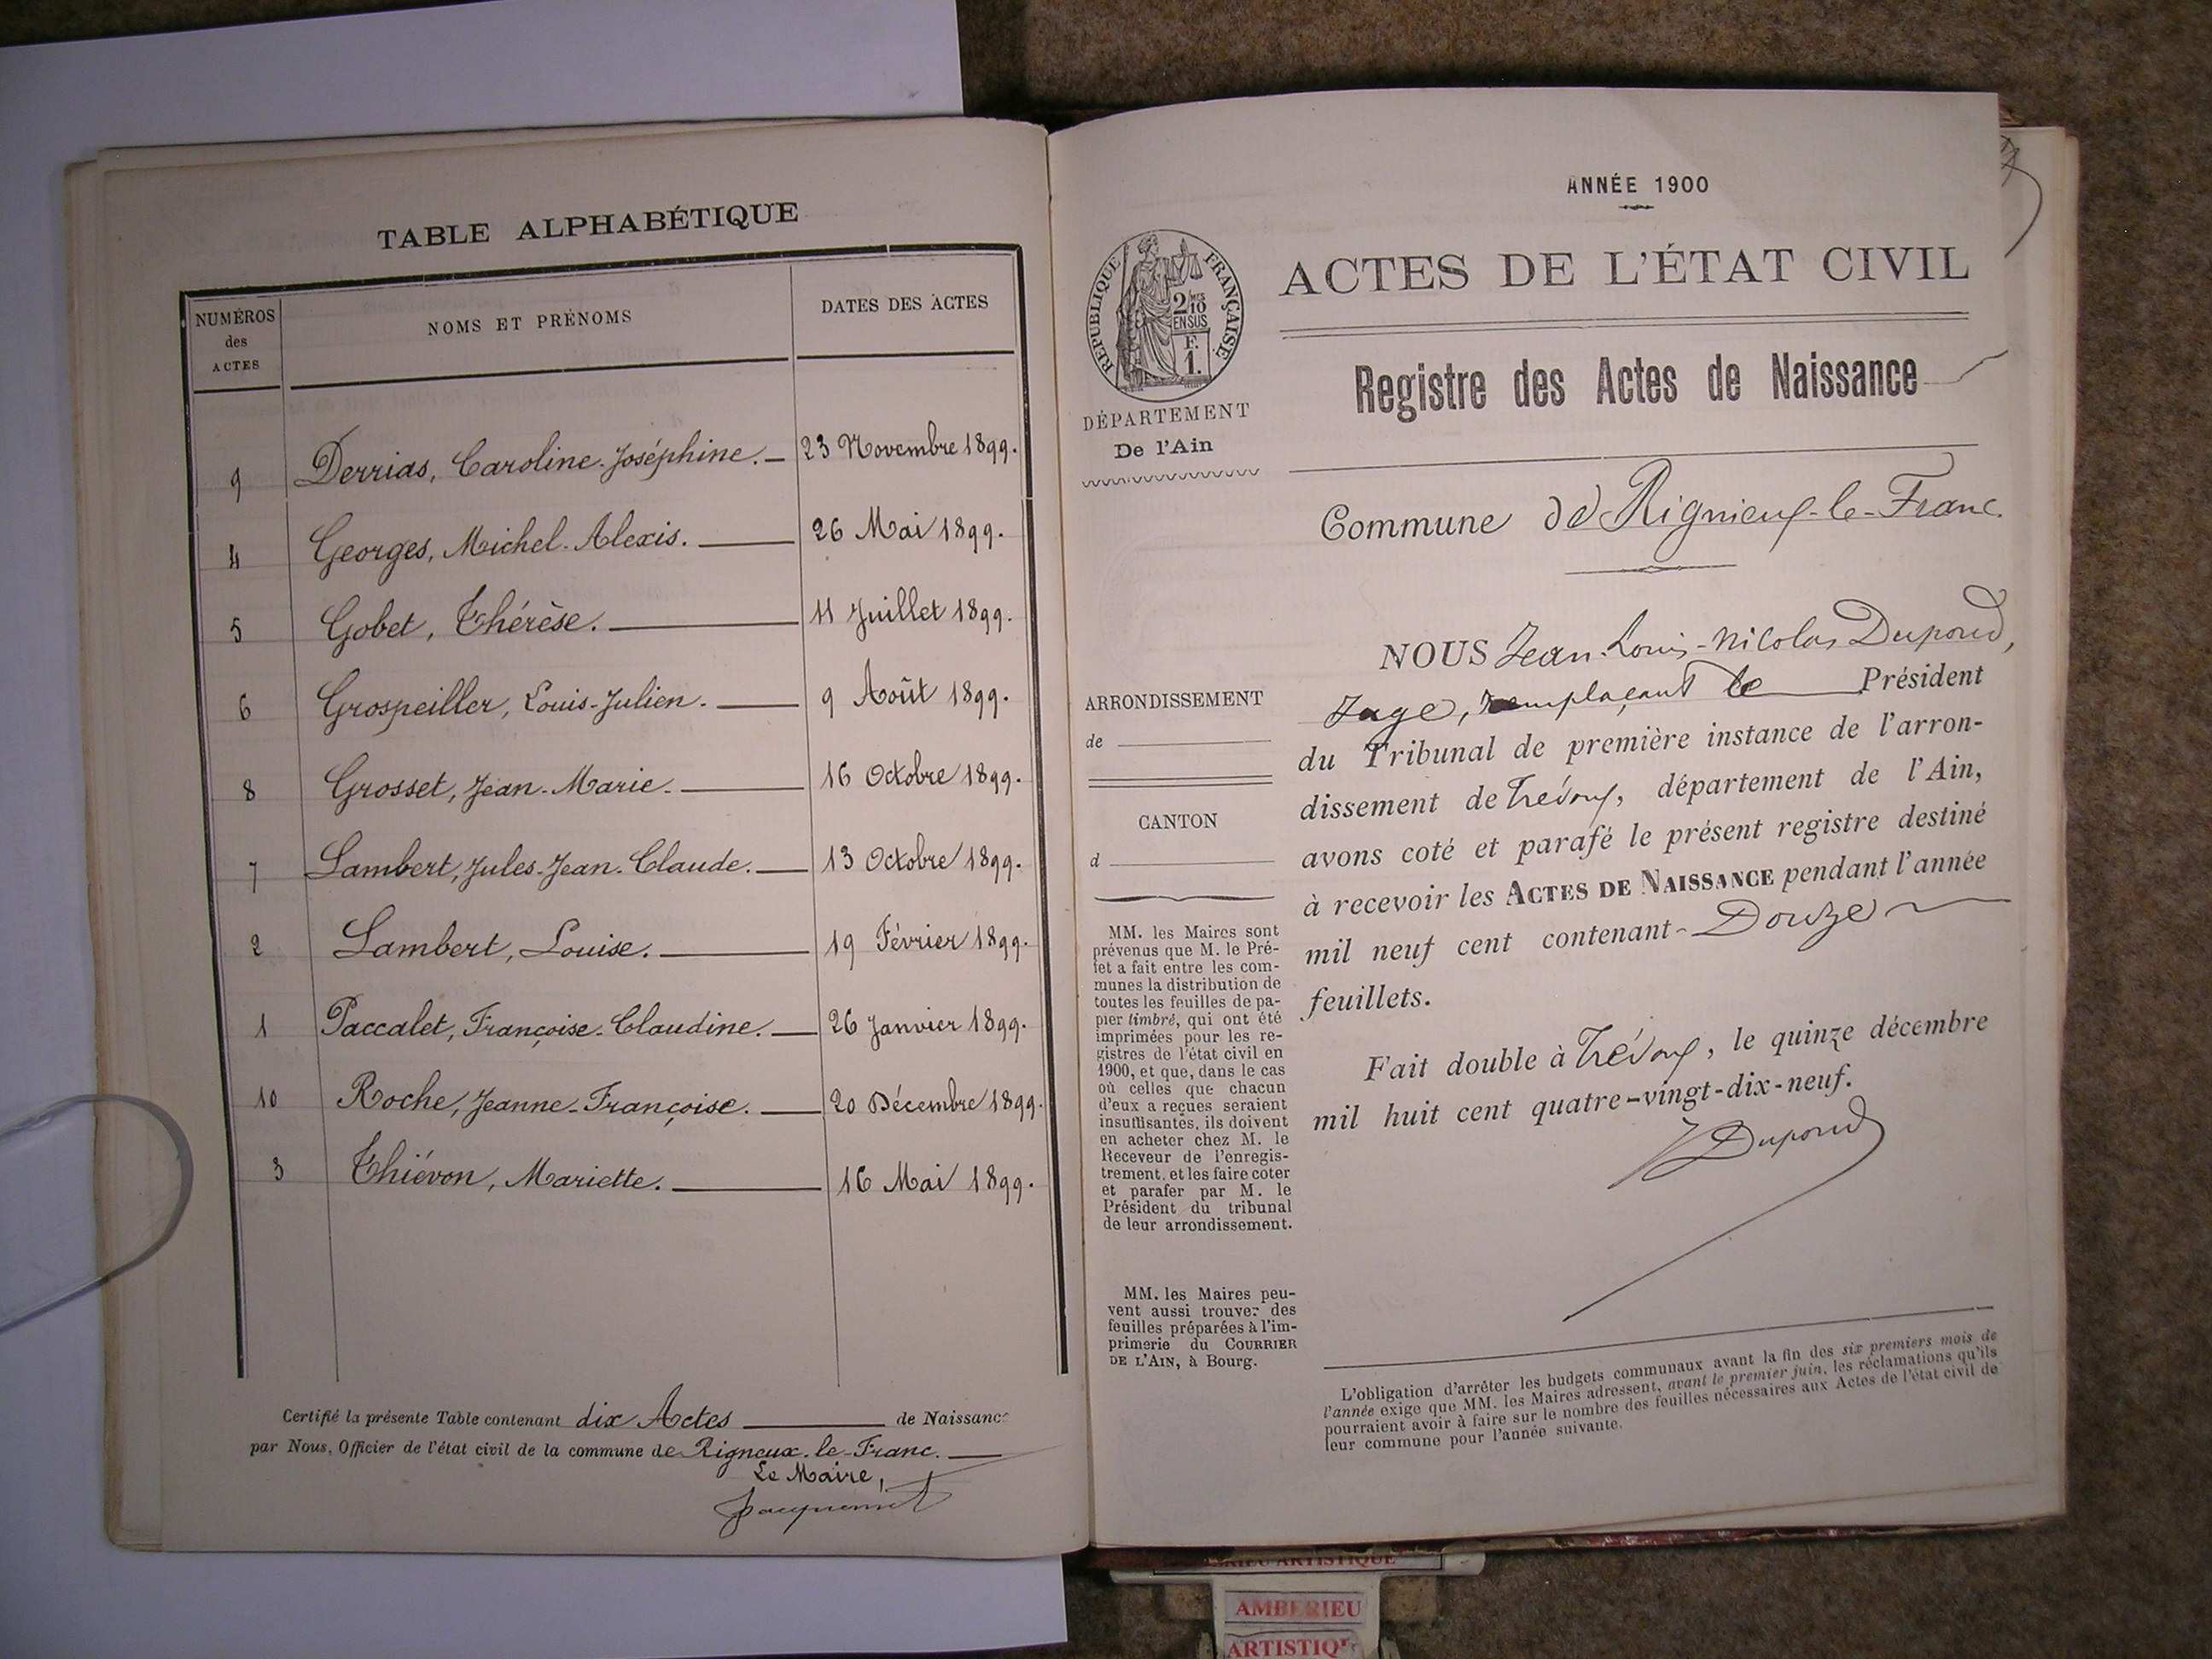 TABLE ALPHABÉTIQUE
NUMÉROS des ACTES
NOMS ET PRÉNOMS
DATES DES ACTES
9 Derrias, Caroline-Joséphine. 23 Novembre 1899.
4 Georges, Michel-Alexis. 26 Mai 1899.
5 Gobet, Thérèse. 11 Juillet 1899.
6 Grospeiller, Louis-Julien. 9 Août 1899.
8 Grosset, Jean-Marie. 16 Octobre 1899.
7 Lambert, Jules-Jean-Claude. 13 Octobre 1899.
2 Lambert, Louise. 19 Février 1899.
1 Paccalet, Françoise-Claudine. 26 Janvier 1899.
10 Roche, Jeanne-Françoise. 20 Décembre 1899.
3 Thiévon, Mariette. 16 Mai 1899.
Certifié la présente Table contenant dix Actes de Naissance
par Nous, Officier de l'état civil de la commune de Rigneux-le-Franc.
Le Maire,
Jacquemet
ANNÉE 1900
ACTES DE L'ÉTAT CIVIL
RÉPUBLIQUE FRANÇAISE
2/10 MES
EN SUS
F.
1.
DÉPARTEMENT
De l'Ain
Registre des Actes de Naissance
Commune de Rignieux-le-Franc.
ARRONDISSEMENT
de
CANTON
d
MM. les Maires sont
prévenus que M. le Pré-
fet a fait entre les com-
munes la distribution de
toutes les feuilles de pa-
pier timbré, qui ont été
imprimées pour les re-
gistres de l'état civil en
1900, et que, dans le cas
où celles que chacun
d'eux a reçues seraient
insuffisantes, ils doivent
en acheter chez M. le
Receveur de l'enregis-
trement, et les faire coter
et parafer par M. le
Président du tribunal
de leur arrondissement.
MM. les Maires peu-
vent aussi trouver des
feuilles préparées à l'im-
primerie du COURRIER
DE L'AIN, à Bourg.
NOUS Jean-Louis-Nicolas Dupond,
Juge, remplaçant le Président
du Tribunal de première instance de l'arron-
dissement de Trévoux, département de l'Ain,
avons coté et parafé le présent registre destiné
à recevoir les ACTES DE NAISSANCE pendant l'année
mil neuf cent contenant Douze
feuillets.
Fait double à Trévoux, le quinze décembre
mil huit cent quatre-vingt-dix-neuf.
Dupond
L'obligation d'arrêter les budgets communaux avant la fin des six premiers mois de
l'année exige que MM. les Maires adressent, avant le premier juin, les réclamations qu'ils
pourraient avoir à faire sur le nombre des feuilles nécessaires aux Actes de l'état civil de
leur commune pour l'année suivante.
ARTISTIQUE
AMBERIEU
ARTISTIQUE